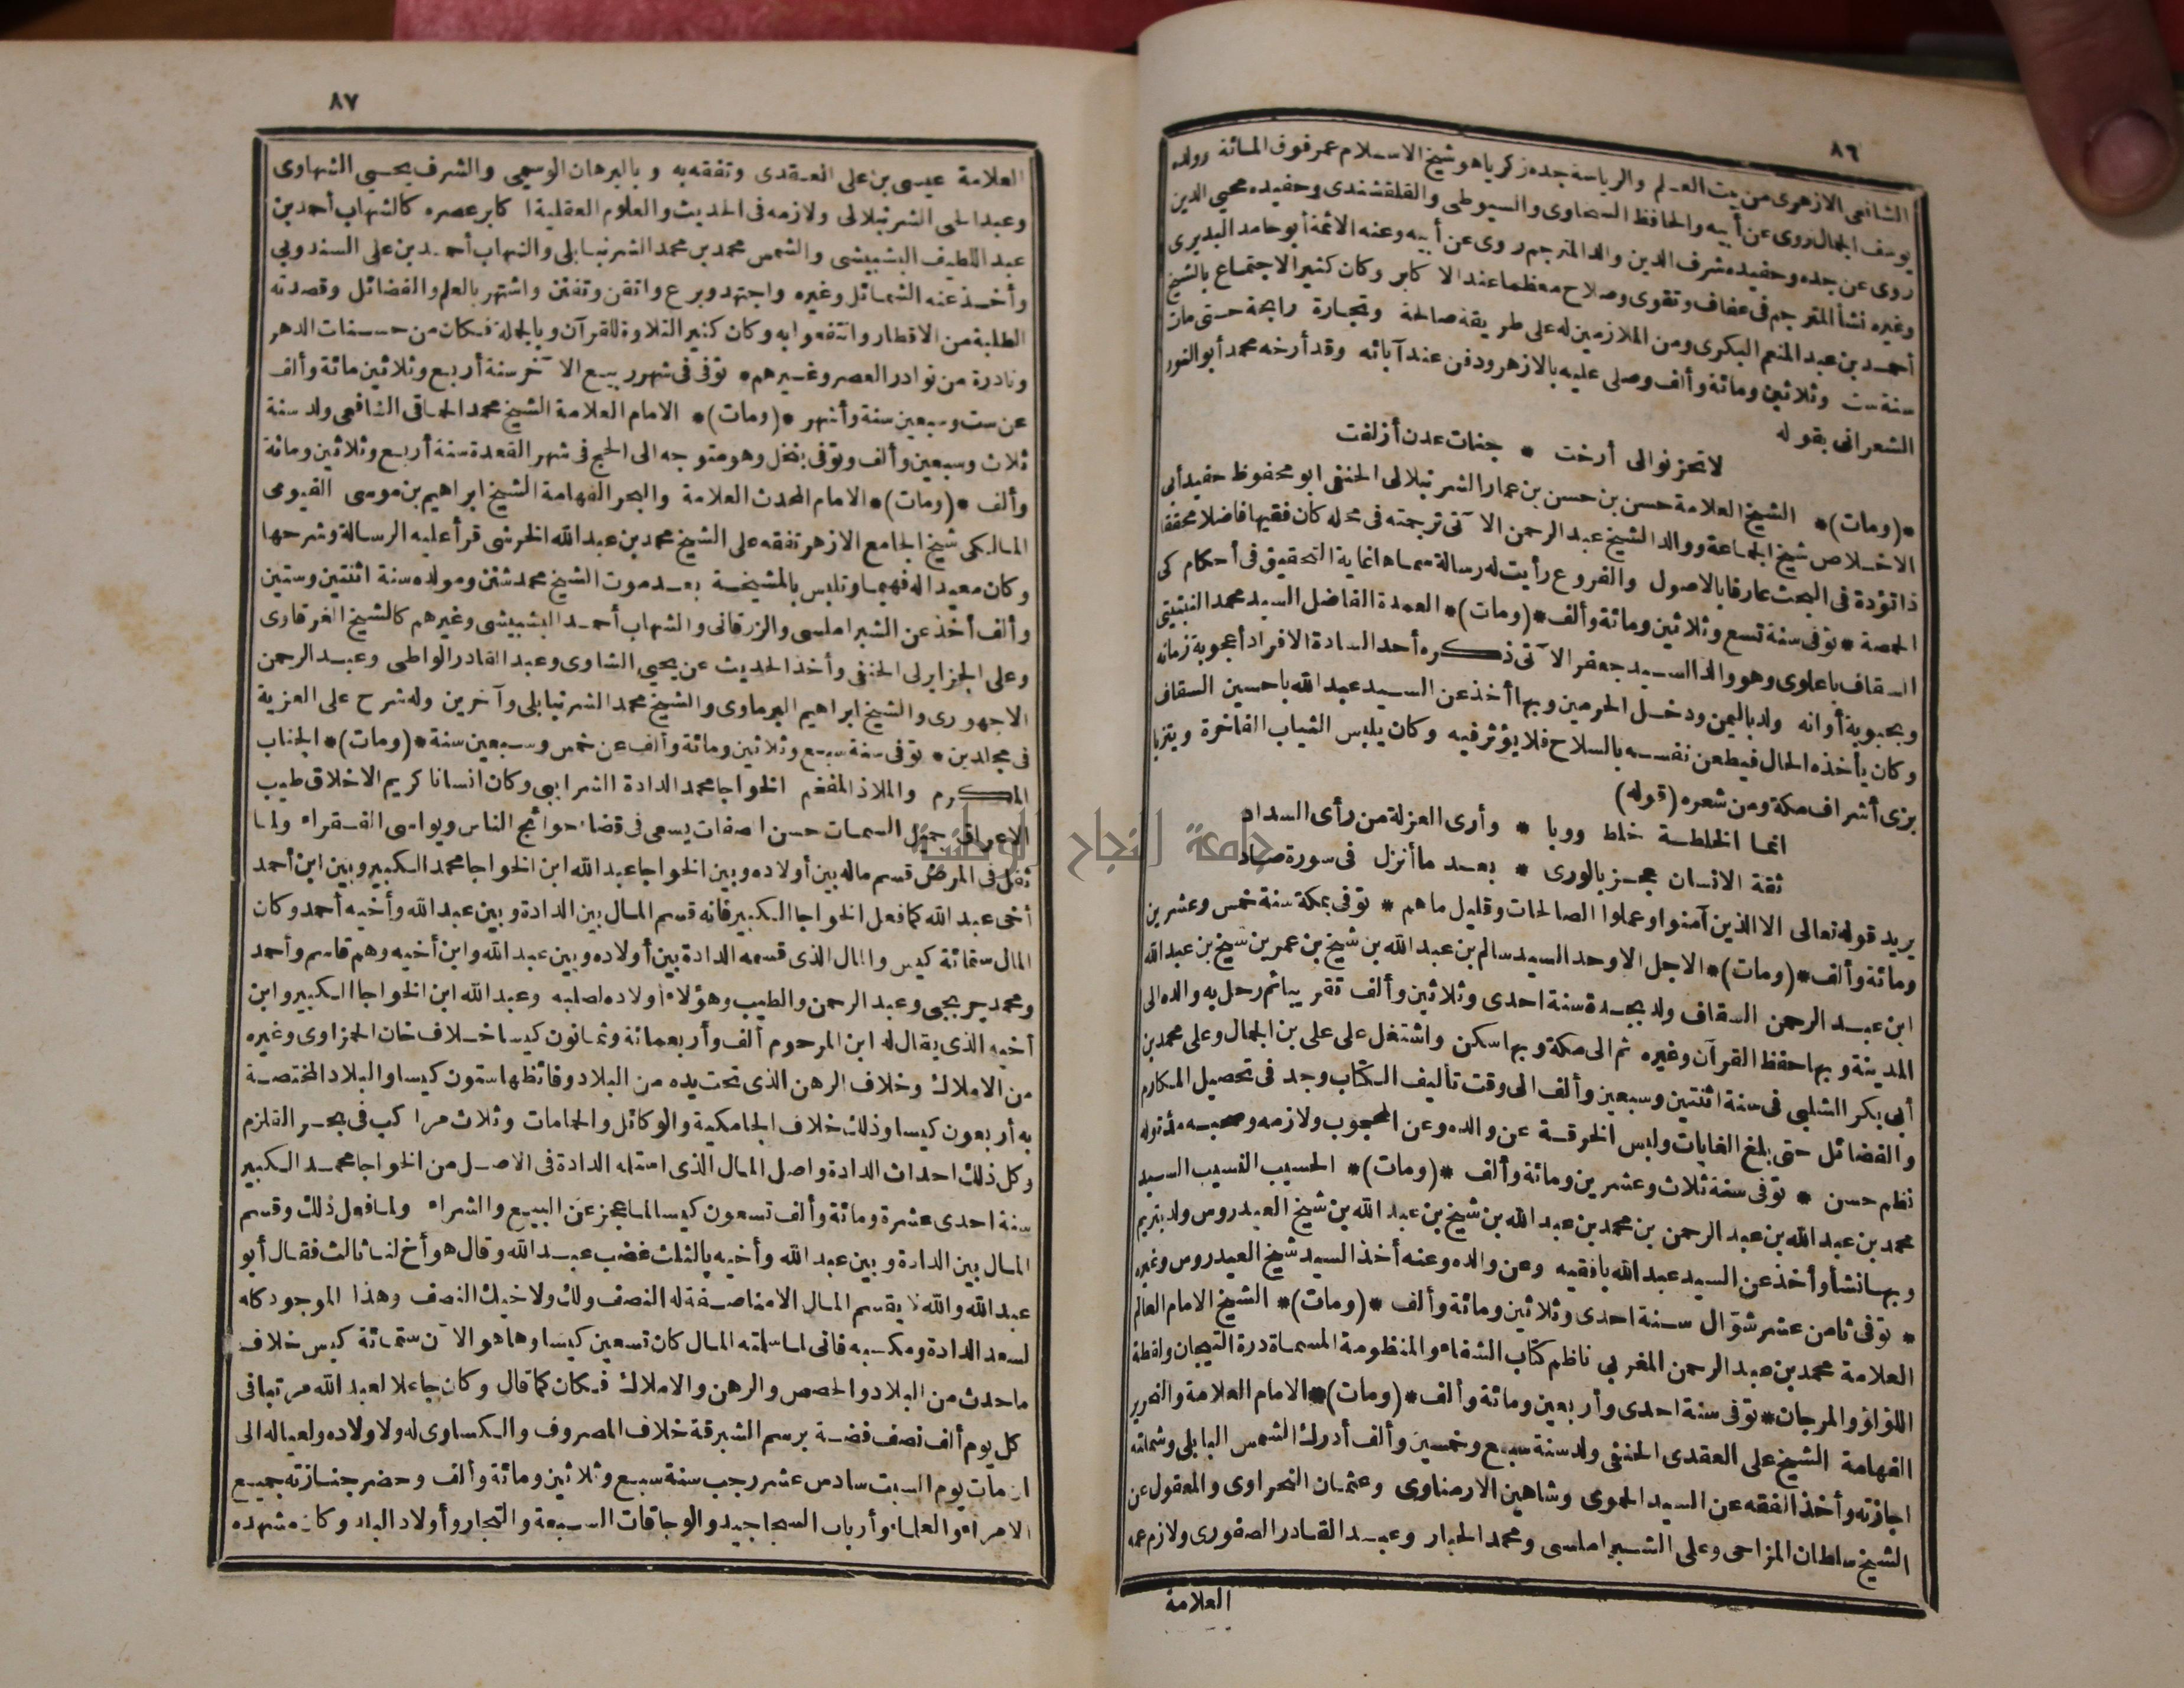 ٨٦
الشافعى الازهرى من بيت العلم والرياسة جده زكريا هو شيخ الاسلام عمر فوق المائة وولده
يوسف الجمال روى عن أبيه والحافظ السخاوى والسيوطى والقلقشندى وحفيده محيي الدين
روى عن جده وحفيده شرف الدين والد المترجم روى عن أبيه وعنه الائمة أبو حامد البديرى
وغيره نشأ المترجم فى عفاف وتقوى وصلاح معظما عند الاكابر وكان كثير الاجتماع بالشيخ
أحمد بن عبد المنعم البكرى ومن الملازمين له على طريقة صالحة وتجارة رابحة حتى مات
سنة ست وثلاثين ومائة وألف وصلى عليه بالازهر ودفن عند آبائه وقد أرخه محمد أبو النور
الشعرانى بقوله
لا تحزنوا لى أرخت * جنات عدن أزلفت
*(ومات)* الشيخ العلامة حسن بن حسن بن عمار الشرنبلالى الحنفى ابو محفوظ حفيد أبى
الاخلاص شيخ الجماعة ووالد الشيخ عبد الرحمن الآتى ترجمته فى محله كان فقيها فاضلا محققا
ذا تؤدة فى البحث عارفا بالاصول والفروع رأيت له رسالة سماها غاية التحقيق فى أحكام كى
الحمصة * توفى سنة تسع وثلاثين ومائة وألف *(ومات)* العمدة الفاضل السيد محمد النبتيتى
السقاف باعلوى وهو والد السيد جعفر الآتى ذكره أحد السادة الافراد أعجوبة زمانه
ومحبوبة أوانه ولد باليمن ودخل الحرمين وبها أخذ عن السيد عبد الله باحسين السقاف
وكان يأخذه الحال فيطعن نفسه بالسلاح فلا يؤثر فيه وكان يلبس الثياب الفاخرة ويتزيا
بزى أشراف مكة ومن شعره (قوله)
انما الخلطة خلط ووبا * وأرى العزلة من رأى السداد
ثقة الانسان عجز بالورى * بعد ما أنزل فى سورة صاد
يريد قوله تعالى الا الذين آمنوا وعملوا الصالحات وقليل ما هم * توفى بمكة سنة خمس وعشرين
ومائة وألف *(ومات)* الاجل الاوحد السيد سالم بن عبد الله بن شيخ بن عمر بن شيخ بن عبد الله
ابن عبد الرحمن السقاف ولد بجدة سنة احدى وثلاثين وألف تقريبا ثم رحل به والده الى
المدينة وبها حفظ القرآن وغيره ثم الى مكة وبها سكن واشتغل على على بن الجمال وعلى محمد بن
أبى بكر الشلبى فى سنة اثنتين وسبعين وألف الى وقت تأليف الكتاب وجد فى تحصيل المكارم
والفضائل حتى بلغ الغايات ولبس الخرقة عن والده وعن المحجوب ولازمه وصحبه مدة وله
نظم حسن * توفى سنة ثلاث وعشرين ومائة وألف *(ومات)* الحسيب النسيب السيد
محمد بن عبد الله بن عبد الرحمن بن محمد بن عبد الله بن شيخ بن عبد الله بن شيخ العيدروس ولد بتريم
وبها نشأ وأخذ عن السيد عبد الله بافقيه وعن والده وعنه أخذ السيد شيخ العيدروس وغيره
* توفى ثامن عشر شوّال سنة احدى وثلاثين ومائة وألف *(ومات)* الشيخ الامام العالم
العلامة محمد بن عبد الرحمن المغربى ناظم كتاب الشفاء والمنظومة المسماة درة التيجان ولقطة
اللؤلؤ والمرجان * توفى سنة احدى وأربعين ومائة وألف *(ومات)* الامام العلامة والنحرير
الفهامة الشيخ على العقدى الحنفى ولد سنة سبع وخمسين وألف أدرك الشمس البابلى وشملته
اجازته وأخذ الفقه عن السيد الحموى وشاهين الارمناوى وعثمان النحراوى والمعقول عن
الشيخ سلطان المزاحى وعلى الشبراملسى ومحمد الحبار وعبد القادر الصفورى ولازم عمه
العلامة
٨٧
العلامة عيسى بن على العقدى وتفقه به وبالبرهان الوسيمى والشرف يحيى الشهاوى
وعبد الحى الشرنبلالى ولازمه فى الحديث والعلوم العقلية اكابر عصره كالشهاب أحمد بن
عبد اللطيف البشبيشى والشمس محمد بن محمد الشرنبابلى والشهاب أحمد بن على السندوبى
وأخذ عنه الشمائل وغيره واجتهد وبرع واتقن وتفنن واشتهر بالعلم والفضائل وقصدته
الطلبة من الاقطار وانتفعوا به وكان كثير التلاوة للقرآن وبالجملة فكان من حسنات الدهر
ونادرة من نوادر العصر وغيرهم * توفى فى شهر ربيع الآخر سنة أربع وثلاثين مائة وألف
عن ست وسبعين سنة وأشهر *(ومات)* الامام العلامة الشيخ محمد الحماقى الشافعى ولد سنة
ثلاث وسبعين وألف وتوفى بنخل وهو متوجه الى الحج فى شهر القعدة سنة أربع وثلاثين ومائة
وألف *(ومات)* الامام المحدث العلامة والبحر الفهامة الشيخ ابراهيم بن موسى الفيومى
المالكى شيخ الجامع الازهر تفقه على الشيخ محمد بن عبد الله الخرشى قرأ عليه الرسالة وشرحها
وكان معيدا له فيهما وتلبس بالمشيخة بعد موت الشيخ محمد شنن ومولده سنة اثنتين وستين
وألف أخذ عن الشبراملسى والزرقانى والشهاب أحمد البشبيشى وغيرهم كالشيخ الغرقاوى
وعلى الجزايرلى الحنفى وأخذ الحديث عن يحيى الشاوى وعبد القادر الواطى وعبد الرحمن
الاجهورى والشيخ ابراهيم البرماوى والشيخ محمد الشرنبابلى وآخرين وله شرح على العزية
فى مجلدين * توفى سنة سبع وثلاثين ومائة وألف عن خمس وسبعين سنة *(ومات)* الجناب
المكرم والملاذ المفخم الخواجا محمد الدادة الشرايبى وكان انسانا كريم الاخلاق طيب
الاعراق جميل السمات حسن الصفات يسعى فى قضاء حوائج الناس ويواسى الفقراء ولما
ثقل فى المرض قسم ماله بين أولاده وبين الخواجا عبد الله ابن الخواجا محمد الكبير وبين ابن أحمد
أخى عبد الله كما فعل الخواجا الكبير فانه قسم المال بين الدادة وبين عبد الله وأخيه أحمد وكان
المال ستمائة كيس والمال الذى قسمه الدادة بين أولاده وبين عبد الله وابن أخيه وهم قاسم وأحمد
ومحمد جربجى وعبد الرحمن والطيب وهؤلاء أولاده لصلبه وعبد الله ابن الخواجا الكبير وابن
أخيه الذى يقال له ابن المرحوم ألف وأربعمائة وثمانون كيسا خلاف خان الحمزاوى وغيره
من الاملاك وخلاف الرهن الذى تحت يده من البلاد وفائظها ستون كيسا والبلاد المختصة
به أربعون كيسا وذلك خلاف الجامكية والوكائل والحمامات وثلاث مراكب فى بحر القلزم
وكل ذلك احداث الدادة واصل المال الذى استلمه الدادة فى الاصل من الخواجا محمد الكبير
سنة احدى عشرة ومائة وألف تسعون كيسا لما عجز عن البيع والشراء ولما فعل ذلك وقسم
المال بين الدادة وبين عبد الله وأخيه بالثلث غضب عبد الله وقال هو أخ لنا ثالث فقال أبو
عبد الله والله لا يقسم المال الا مناصفة له النصف ولك ولاخيك النصف وهذا الموجود كله
لسعد الدادة ومكسبه فانى لما سلمته المال كان تسعين كيسا وها هو الآن ستمائة كيس خلاف
ما حدث من البلاد والحصص والرهن والاملاك فكان كما قال وكان جاعلا لعبد الله مرتبا فى
كل يوم ألف نصف فضة برسم الشبرقة خلاف المصروف والكساوى له ولاولاده ولعياله الى
ان مات يوم السبت سادس عشر رجب سنة سبع وثلاثين ومائة وألف وحضر جنازته جميع
الامراء والعلماء وأرباب السجاجيد والوجاقات السبعة والتجار وأولاد البلد وكان مشهده
جامعة النجاح الوطنية